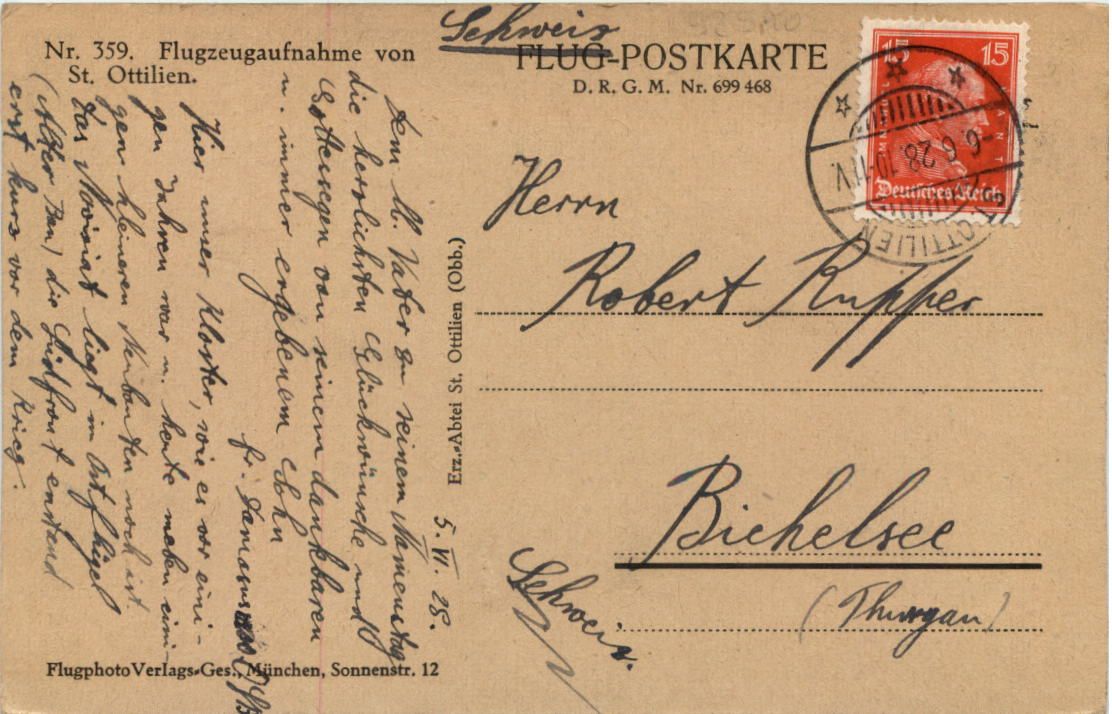 Schweiz
Nr. 359. Flugzeugaufnahme von
St. Ottilien.
FLUG-POSTKARTE
D. R. G. M. Nr. 699 468
15 15
Deutsches Reich
-6.6.28.10-11V.
ST. OTTILIEN
5. VI. 28.
Dem lb. Vater zu seinem Namenstag
die herzlichsten Glückwünsche und
Gottessegen von seinem dankbaren
u. immer ergebenem Sohn
fr. Damasus
Hier unser Kloster, wie es vor eini-
gen Jahren war u. heute neben eini-
gen kleineren Neubauten noch ist
Das Noviziat liegt im Ostflügel
(Alter Bau) die Südfront enstand
erst kurz vor dem Krieg.
Erz-Abtei St. Ottilien (Obb.)
Herrn
Robert Rupper
Bichelsee
(Thurgau)
Schweiz.
Flugphoto Verlags-Ges., München, Sonnenstr. 12